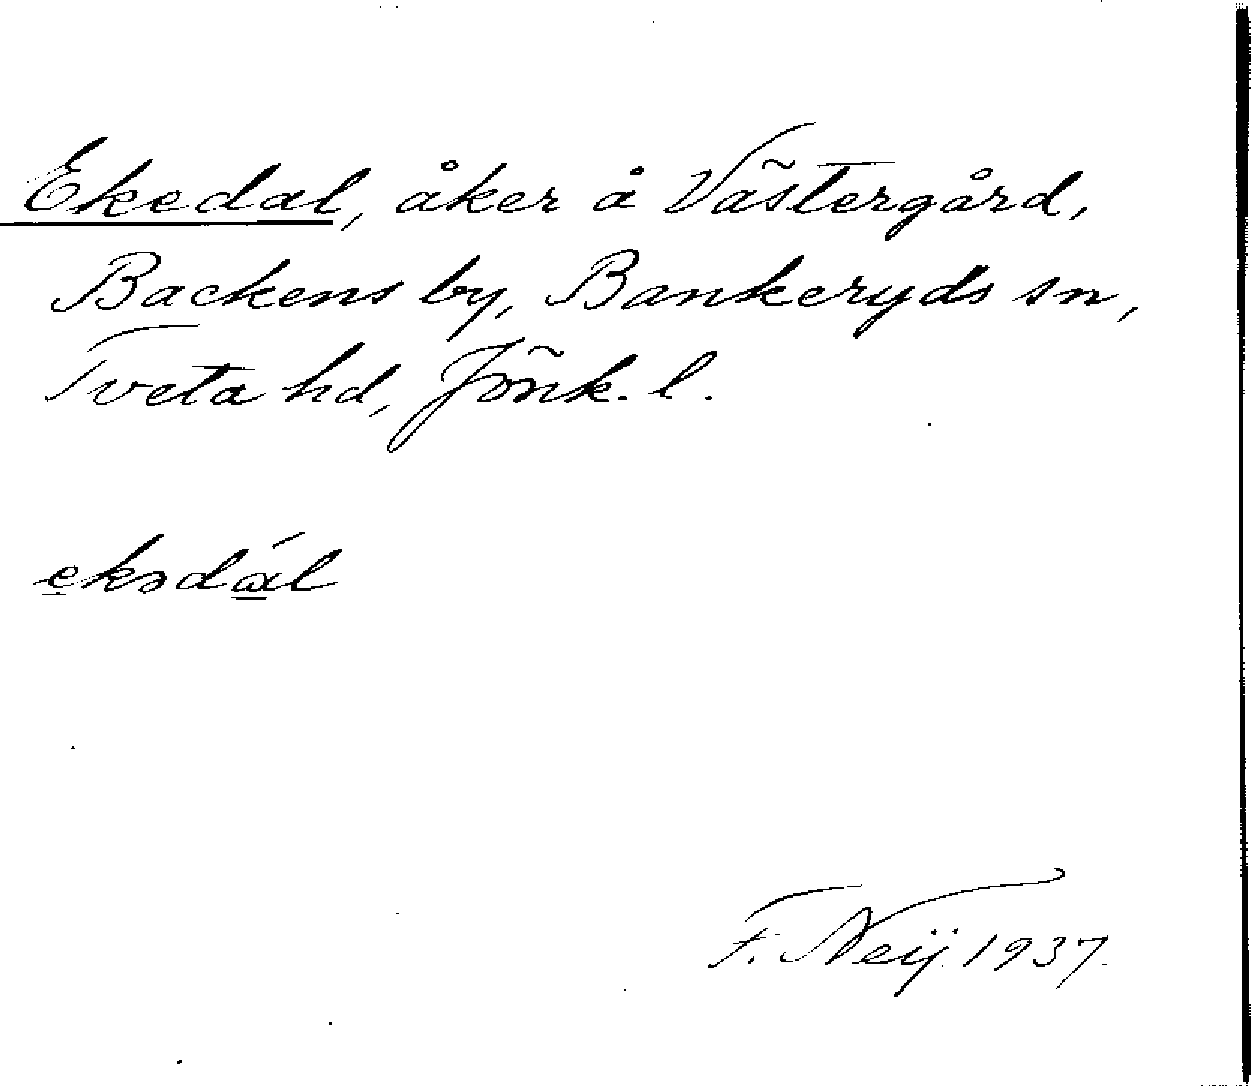 Ekedal, åker å Västergård,
Backens by, Bankeryds sn,
Tveta hd, Jönk. l.
e̠kədά̠l
F. Neij. 1937.